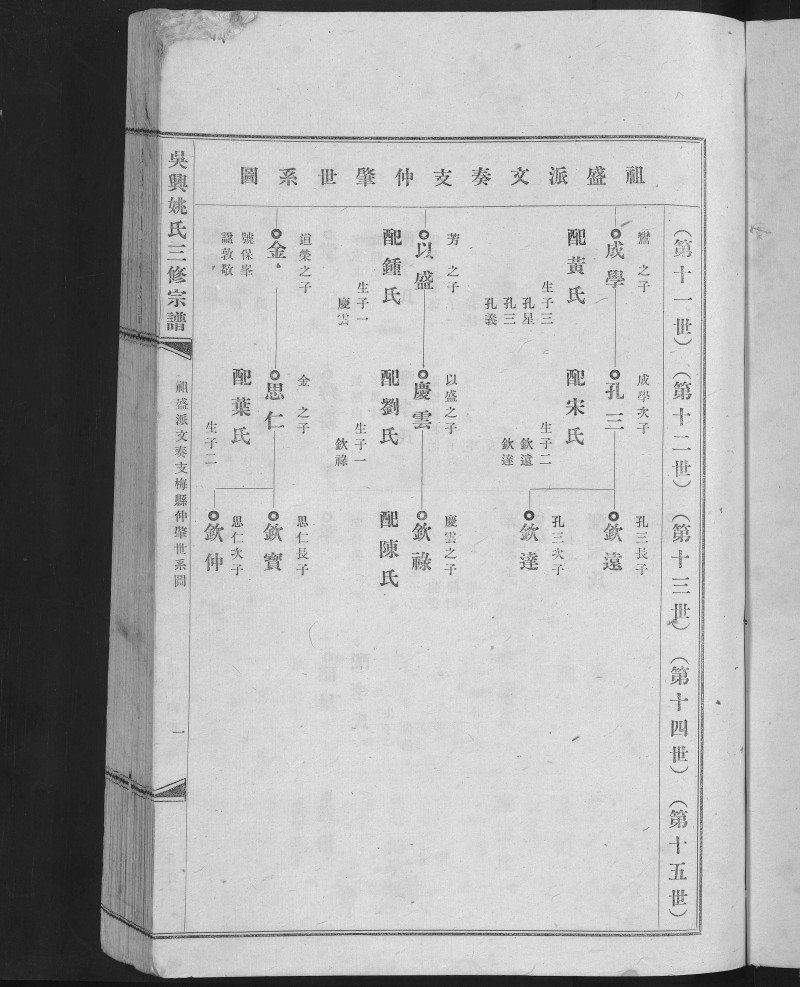 祖盛派文奏支仲肇世系圖
(第十一世)
(第十二世)
(第十三世)
(第十四世)
(第十五世)
鸞之子
成學
配黃氏
生子三
孔星
孔三
孔義
成學次子
孔三
配宋氏
生子二
欽遠
欽達
孔三長子
欽遠
孔三次子
欽達
芳之子
以盛
配鍾氏
生子一
慶雲
以盛之子
慶雲
配劉氏
生子一
欽祿
慶雲之子
欽祿
配陳氏
道榮之子
金
號保峯
諡敦敬
金之子
思仁
配葉氏
生子二
思仁長子
欽寶
思仁次子
欽仲
吳興姚氏三修宗譜
祖盛派文奏支梅縣仲肇世系圖
一